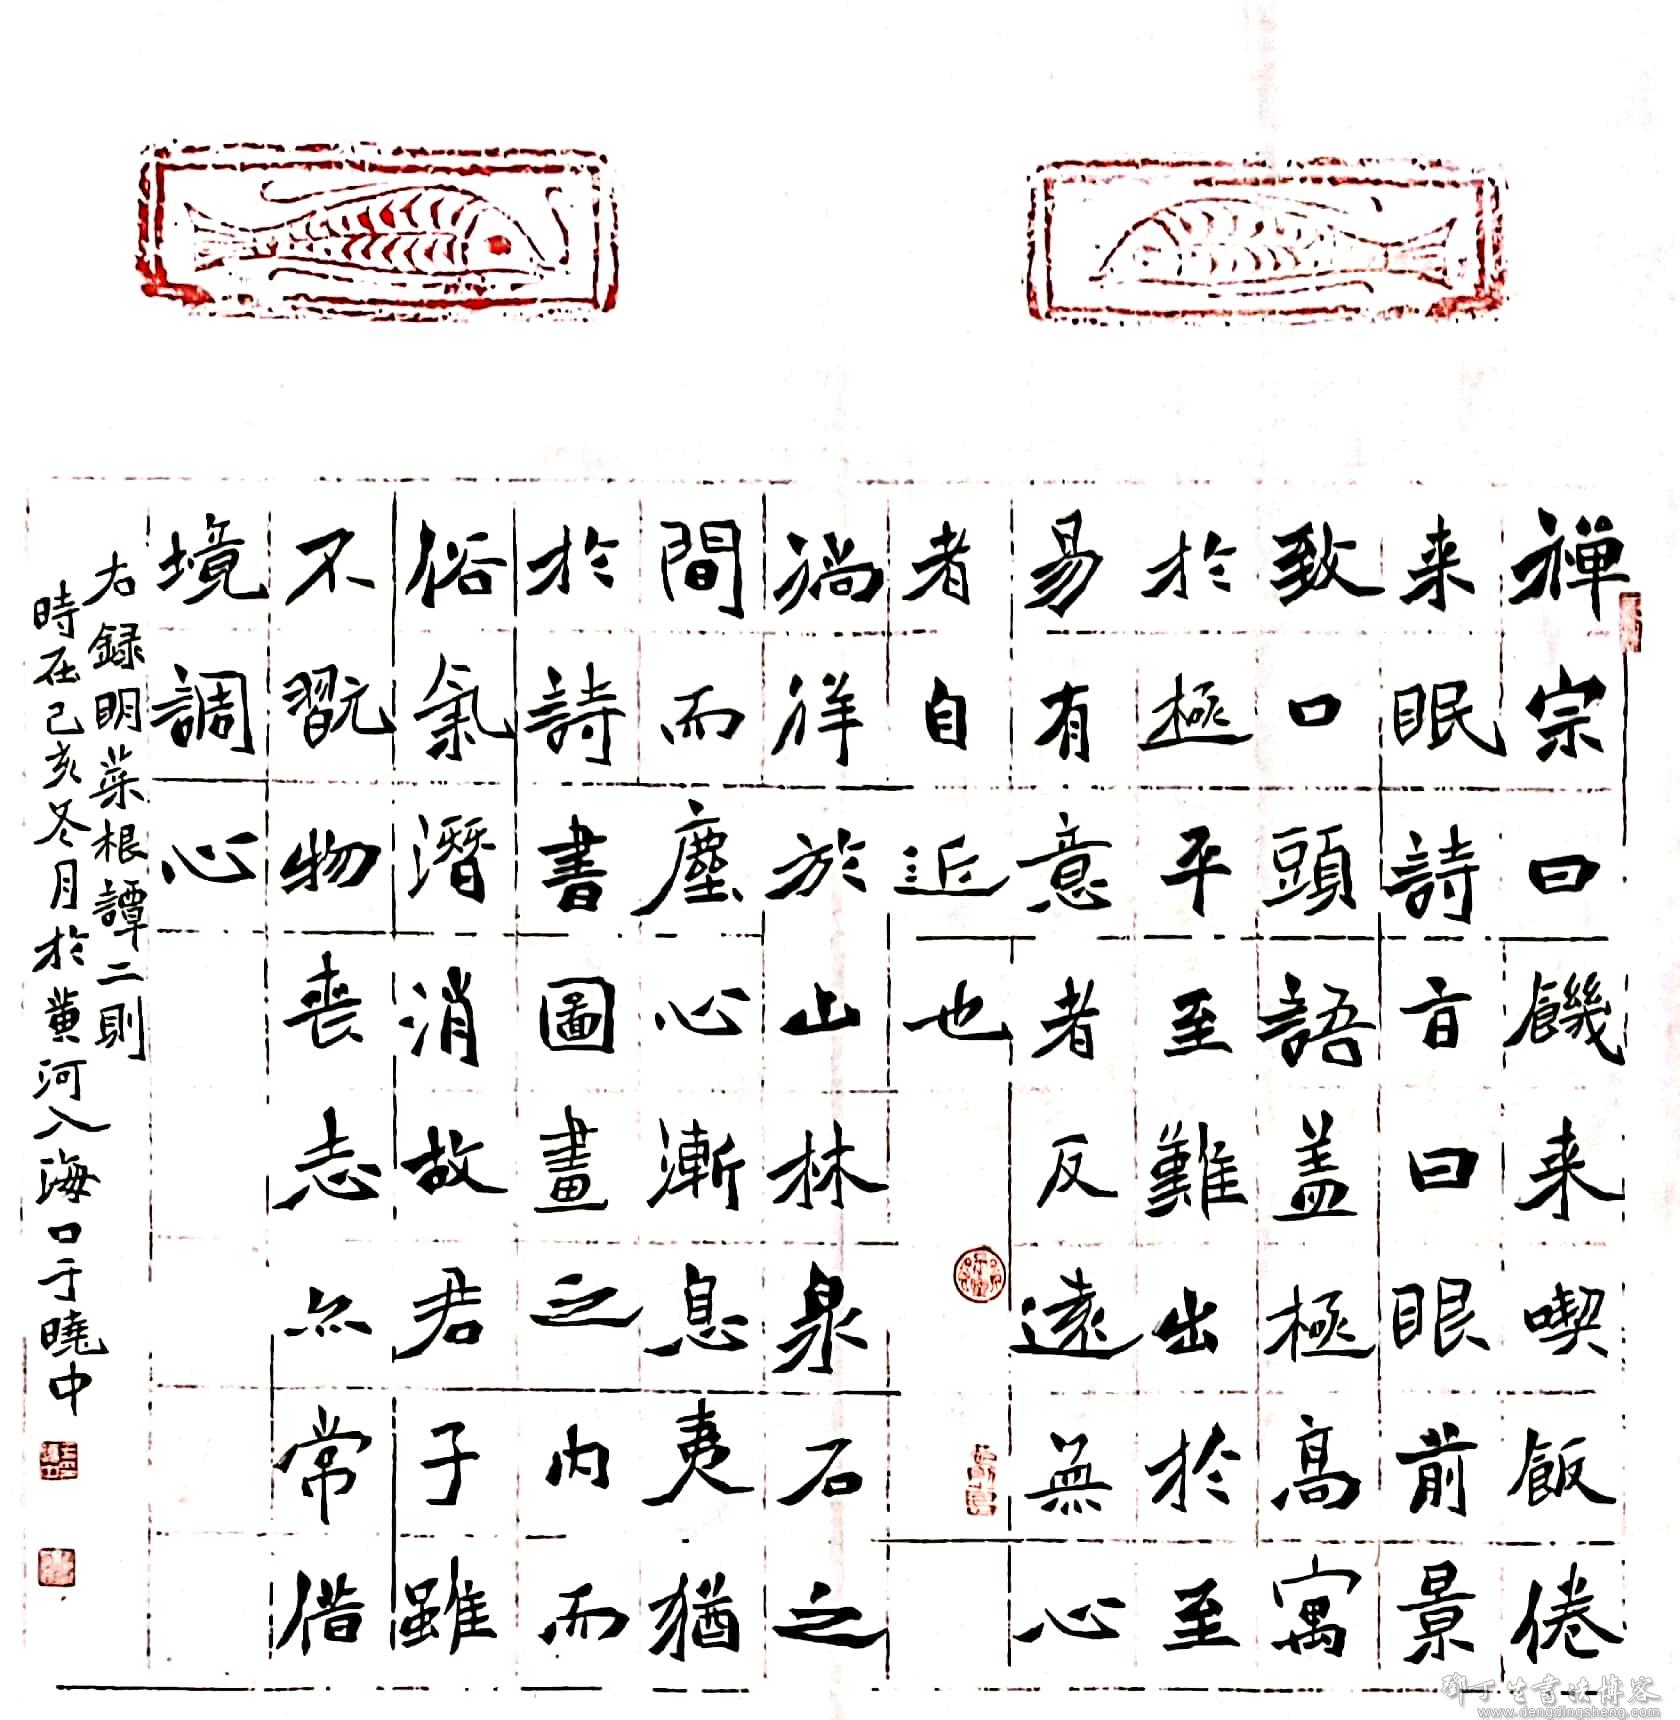 禅宗曰饑来喫飯倦
来眠詩旨曰眼前景
致口頭語盖極高寓
於極平至難出於至
易有意者反遠無心
者自近也
徜徉於山林泉石之
間而塵心漸息夷猶
於詩書圖畫之内而
俗氣潛消故君子雖
不翫物喪志亦常借
境調心
右録明菜根譚二則
時在己亥冬月於黄河入海口于曉中
鄧丁生書法博客
www.dengdingsheng.com